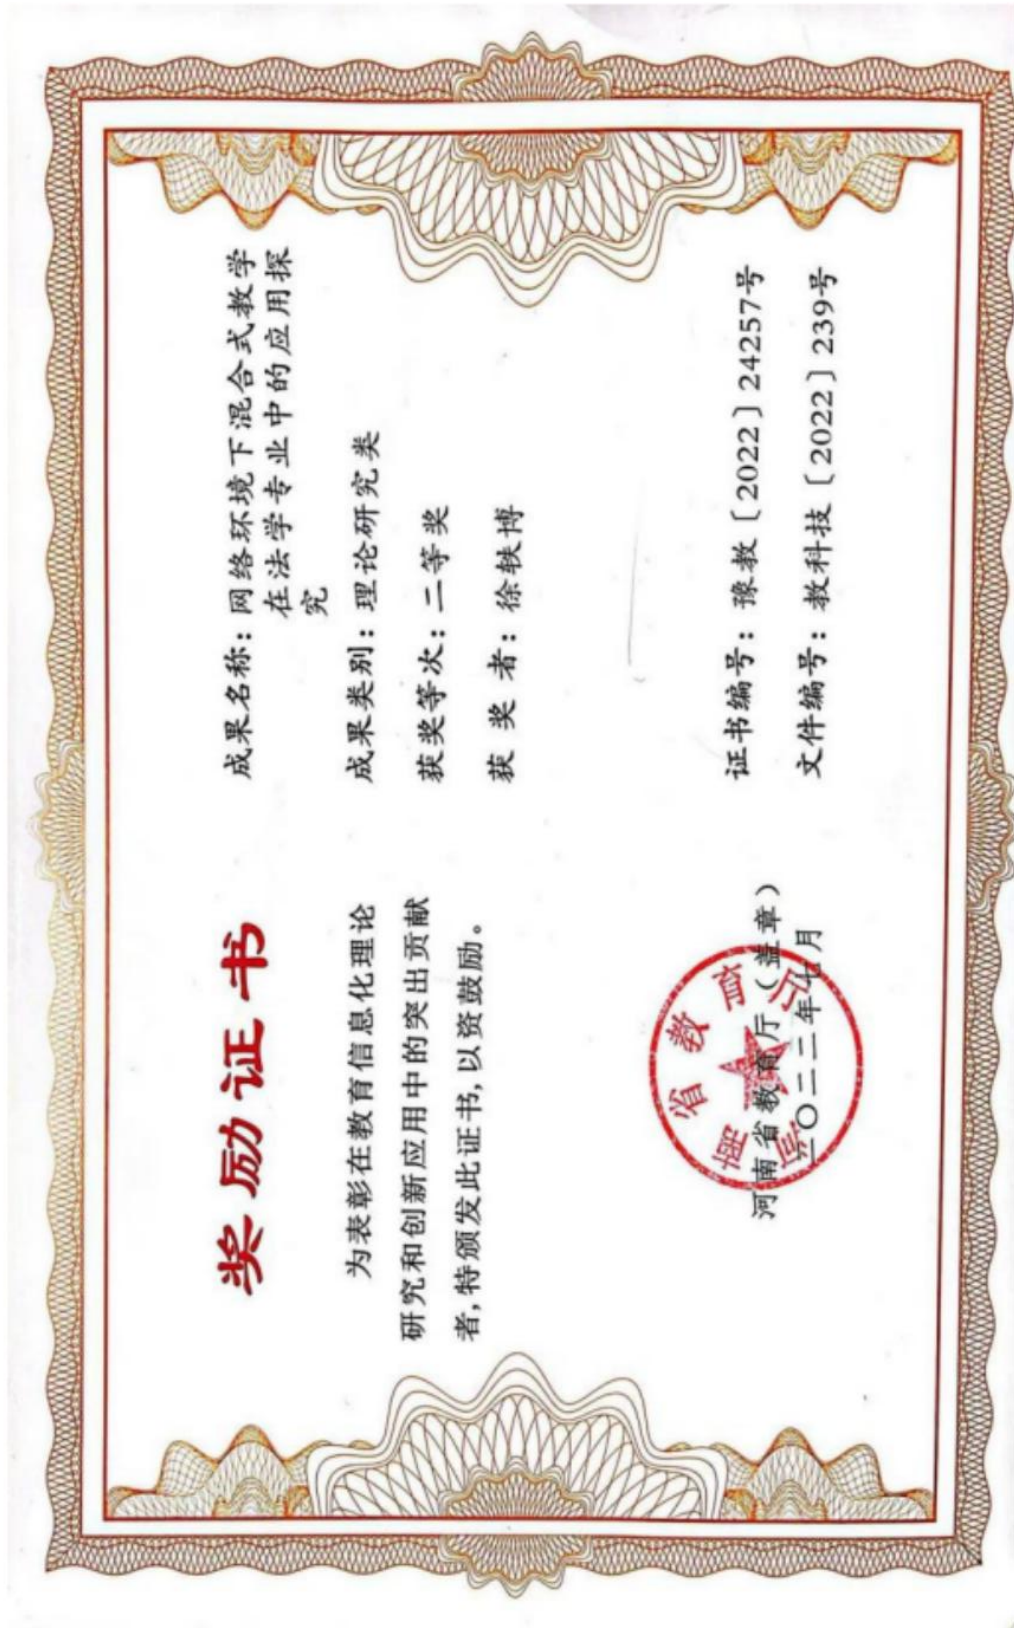 奖励证书
为表彰在教育信息化理论
研究和创新应用中的突出贡献
者,特颁发此证书,以资鼓励。
河南省教育厅（盖章）
二〇二二年七月
河南省教育厅
成果名称：网络环境下混合式教学
在法学专业中的应用探
究
成果类别：理论研究类
获奖等次：二等奖
获 奖 者：徐轶博
证书编号：豫教〔2022〕24257号
文件编号：教科技〔2022〕239号